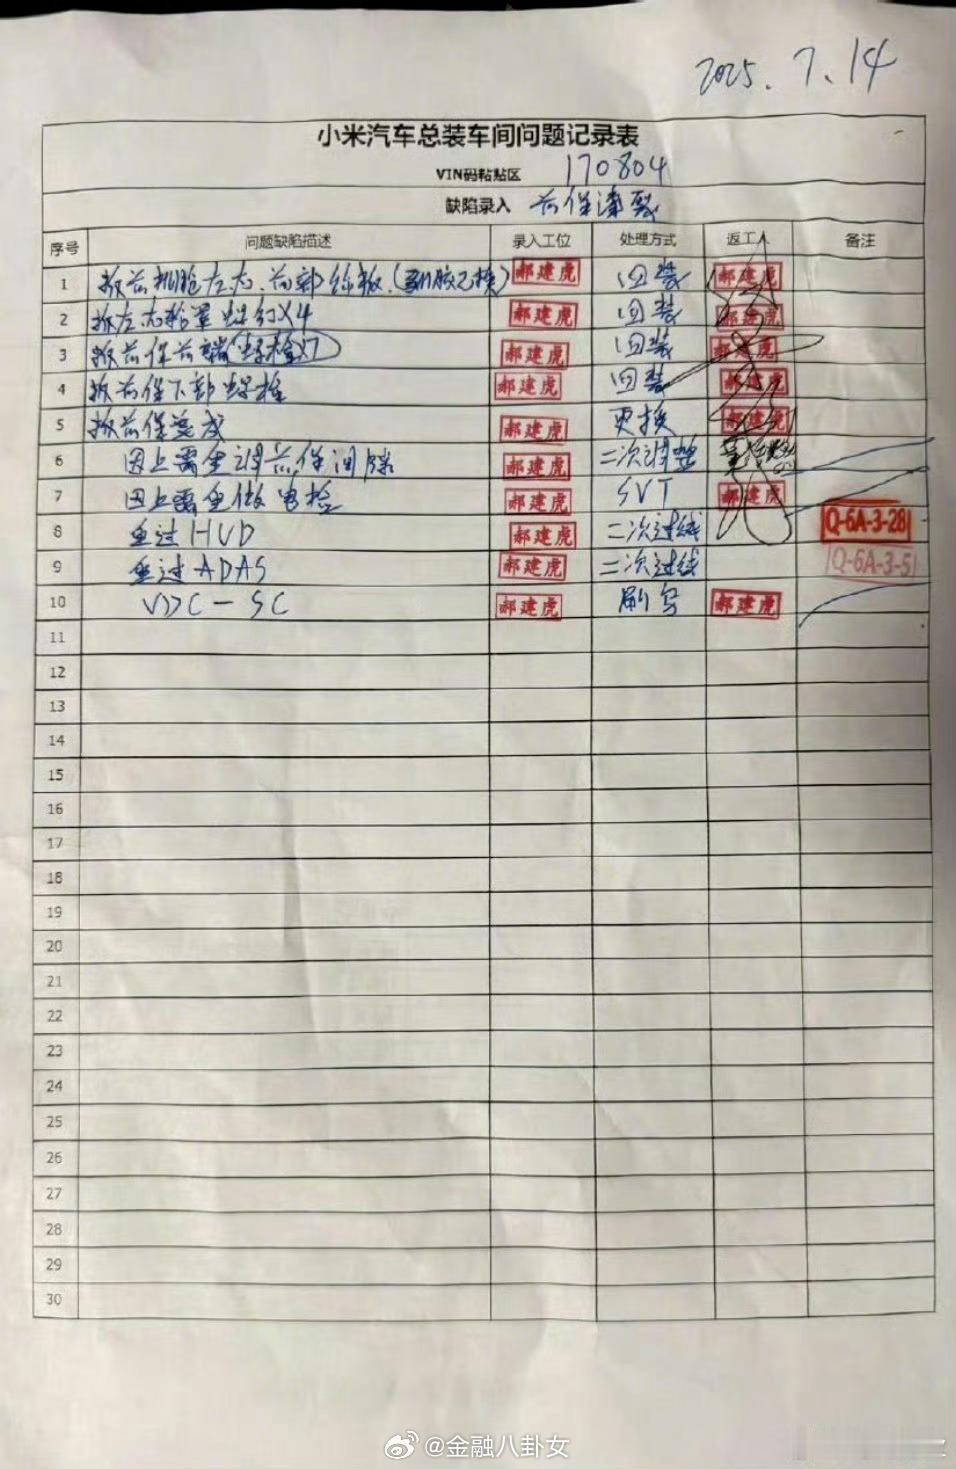 2025.7.14
小米汽车总装车间问题记录表
VIN码粘贴区 170804
缺陷录入 前保漆裂
序号 问题缺陷描述 录入工位 处理方式 返工人 备注
1 拆前机舱左右、前部饰板 郝建虎 回装 郝建虎
2 拆左右轮罩螺钉X4 郝建虎 回装 郝建虎
3 拆前保前端螺栓X7 郝建虎 回装 郝建虎
4 拆前保下部螺栓 郝建虎 回装 郝建虎
5 拆前保总成 郝建虎 更换 郝建虎
6 因上需重调前保间隙 郝建虎 二次调整
7 因上需重做电检 郝建虎 SVT 郝建虎
8 重过HUD 郝建虎 二次过线 Q-6A-3-28
9 重过ADAS 郝建虎 二次过线 Q-6A-3-5
10 VDC-SC 郝建虎 刷写 郝建虎
11
12
13
14
15
16
17
18
19
20
21
22
23
24
25
26
27
28
29
30
@金融八卦女